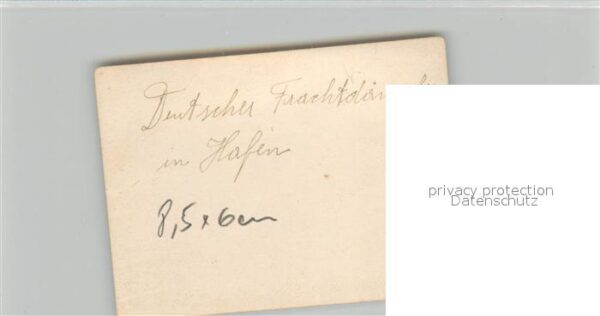 Deutscher
in Hafen
8,5 x 6 cm
privacy protection
Datenschutz